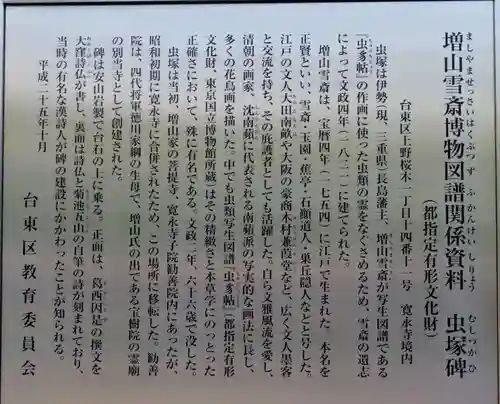 増山雪斎博物図譜関係資料 虫塚碑
ましやませっさいはくぶつ ずふかんけいしりょう むしつかひ
(都指定有形文化財)
台東区上野桜木一丁目十四番十一号 寛永寺境内
虫塚は伊勢(現、三重県)長島藩主、増山雪斎が写生図譜である
『虫豸帖』の作画に使った虫類の霊をなぐさめるため、雪斎の遺志
によって文政四年(一八二一)に建てられた。
増山雪斎は、宝暦四年(一七五四)に江戸で生まれた。本名を
正賢といい、雪斎・玉園・蕉亭・石顛道人・巣丘隠人などと号した。
江戸の文人大田南畝や大阪の豪商木村蒹葭堂など、広く文人墨客
と交流を持ち、その庇護者としても活躍した。自ら文雅風流を愛し、
清朝の画家、沈南蘋に代表される南蘋派の写実的な画法に長じ、
多くの花鳥画を描いた。中でも虫類写生図譜『虫豸帖』(都指定有形
文化財、東京国立博物館所蔵)はその精緻さと本草学にのっとった
正確さにおいて、殊に有名である。文政二年、六十六歳で没した。
虫塚は当初、増山家の菩提寺、寛永寺子院勧善院内にあったが、
昭和初期に寛永寺に合併されたため、この場所に移転した。勧善
院は、四代将軍徳川家綱の生母で、増山氏の出である宝樹院の霊廟
の別当寺として創建された。
碑は安山岩製で台石の上に乗る。正面は、葛西因是の撰文を
大窪詩仏が書し、裏面は詩仏と菊池五山の自筆の詩が刻まれており、
当時の有名な漢詩人が碑の建設にかかわったことが知られる。
平成二十五年十月
台東区教育委員会